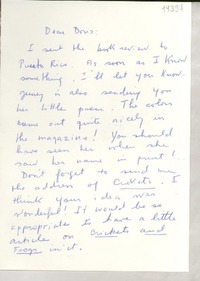 Dear Doris:
I sent the book review to
Puerto Rico. As soon as I know
something, I'll let you know.
Jenny is also sending you
her little poem. The colors
came out quite nicely in
the magazine! You should
have seen her when she
saw her name in print!
Don't forget to send me
the address of Crickets. I
think your idea was
wonderful! It would be so
appropriate to have a little
article on Crickets and
Frogs in it.